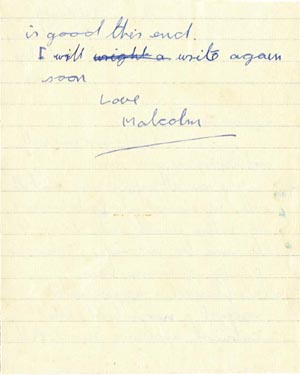 is good this end.
I will wright a write again
soon
Love
Malcolm